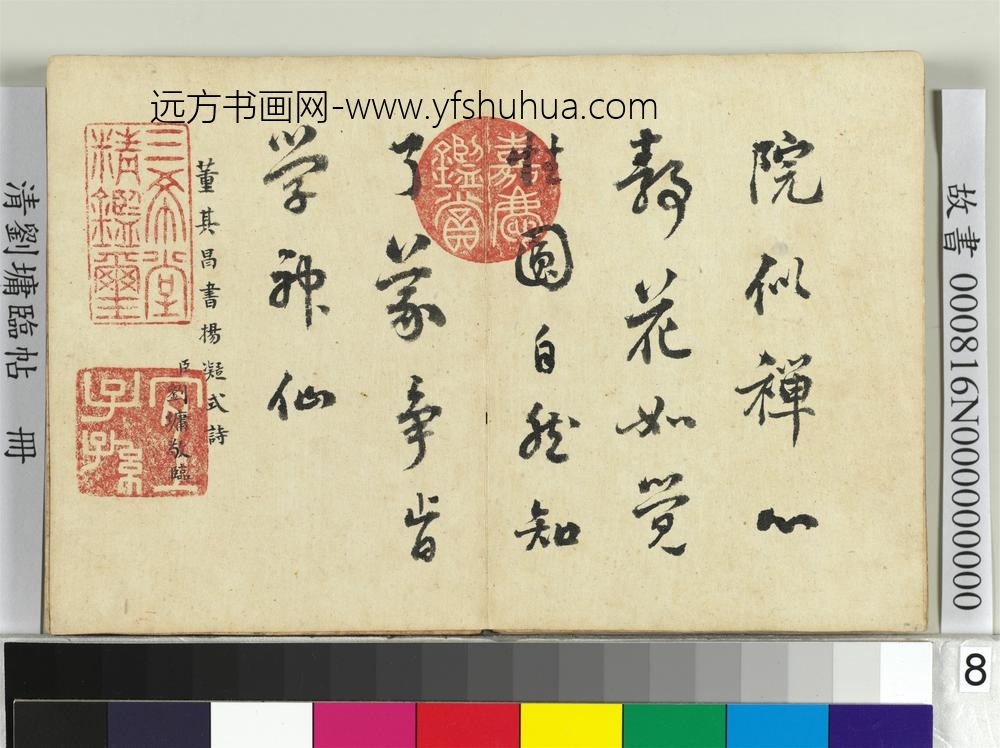 远方书画网-www.yfshuhua.com
院似禅心
静花如觉
性圆自然知
了义争肯
学神仙
董其昌書楊凝式詩
臣劉墉敬臨
嘉慶鑑賞
三希堂精鑑璽
宜子孫
清劉墉臨帖 冊
故書 000816N000000000
8